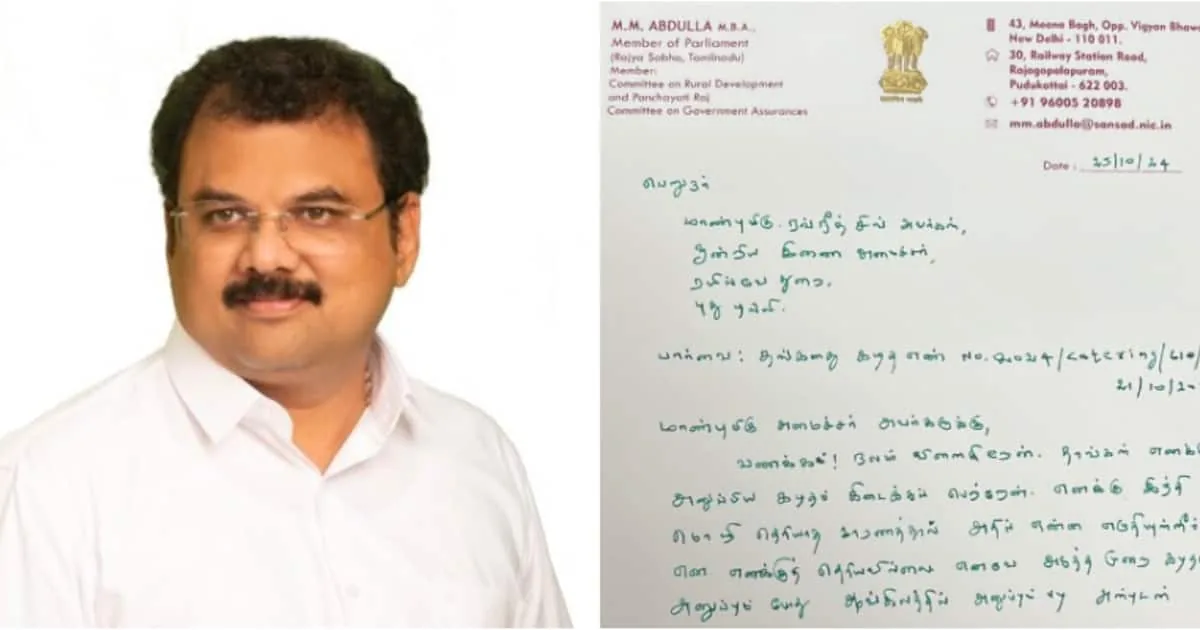 M.M. ABDULLA M.B.A.,
Member of Parliament
(Rajya Sabha, Tamilnadu)
Member:
Committee on Rural Development
and Panchayati Raj
Committee on Government Assurances
43, Meena Bagh, Opp. Vigyan Bhawa
New Delhi - 110 011.
30, Railway Station Road,
Rajagopalapuram,
Pudukottai - 622 003.
+91 96005 20898
mm.abdulla@sansad.nic.in
Date : 25/10/24
பெறுநர்
மாண்புமிகு. ரவ்நீத் சிங் அவர்கள்,
ஒன்றிய இணை அமைச்சர்,
ரயில்வே துறை,
புது டில்லி.
பார்வை : தங்களது கடித எண் No. 2024/catering/610/
21/10/20
மாண்புமிகு அமைச்சர் அவர்களுக்கு,
வணக்கம்! நலம் விளைகிறேன். தாங்கள் எனக்கு
அனுப்பிய கடிதம் கிடைக்கப் பெற்றேன். எனக்கு இந்தி
மொழி தெரியாத காரணத்தால் அதில் என்ன எழுதியுள்ளீர்
என எனக்குத் தெரியவில்லை எனவே அடுத்த முறை கடித
அனுப்பும் போது ஆங்கிலத்தில் அனுப்பும் படி அன்புடன்